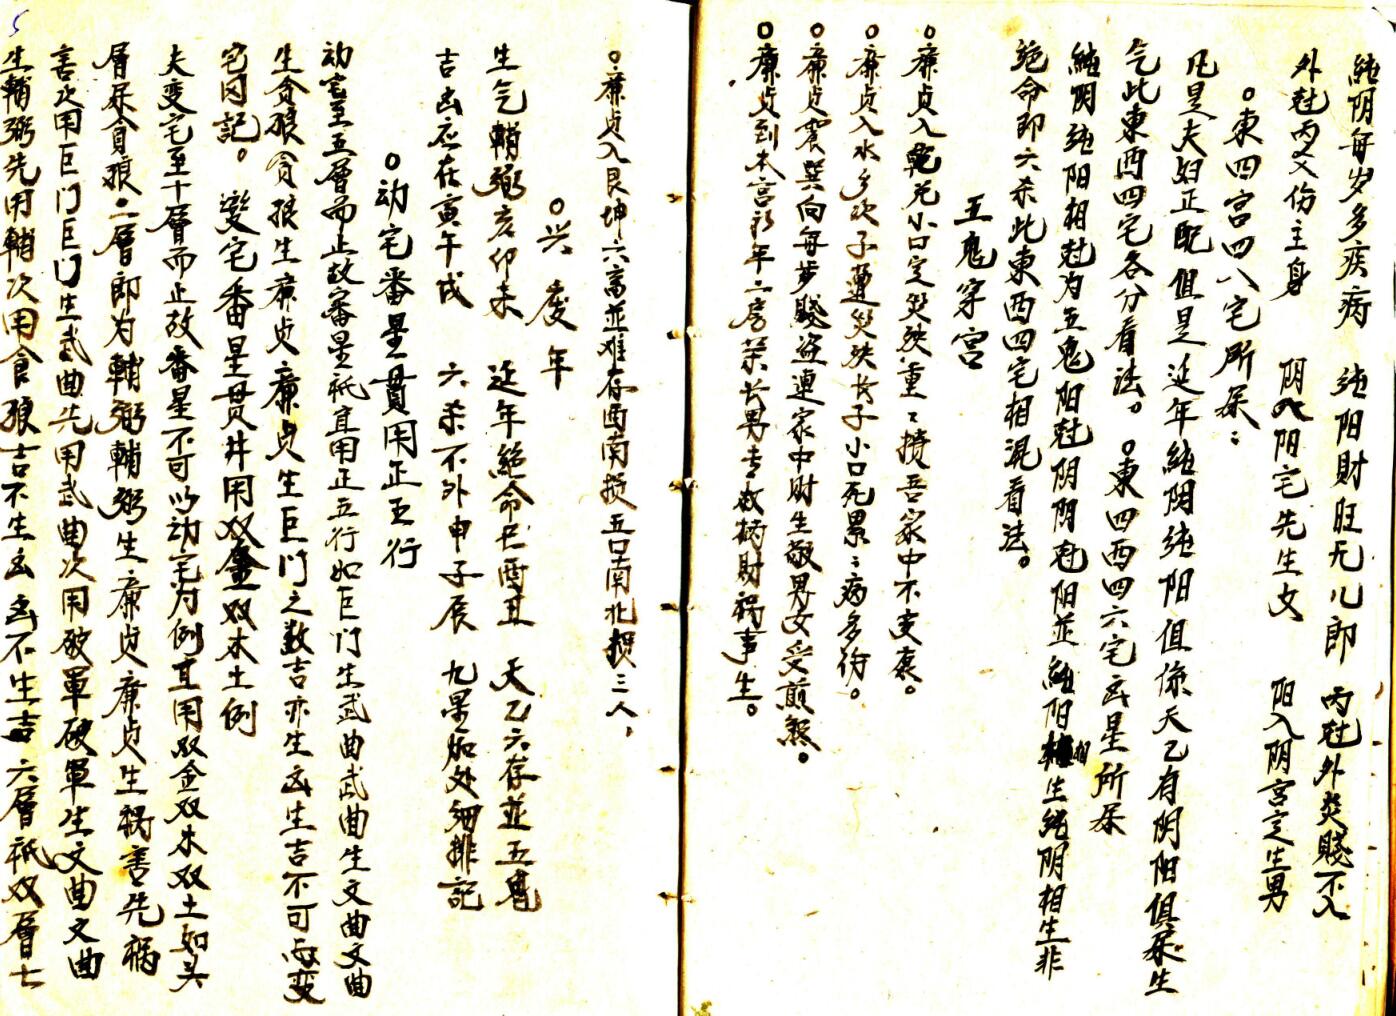 纯阴每岁多疾病 纯阳财旺无儿郎 内尅外炎贱不入
外尅内又伤主身 阴入阳宅先生女 阳入阴宫定生男
○東四宫四八宅所属：
凡是夫妇正配俱是延年纯阴纯阳俱像天乙有阴阳俱属生
气此東西四宅各分看法。○東四西四六宅凶星所属
纯阴纯阳相尅为五鬼阳尅阴阴尅阳並纯阳相生纯阴相生非
绝命即六杀此東西四宅相混看法。
五鬼穿宫
○廉贞入乾兑小口定災殃重：損吾家中不安康。
○廉贞入水乡次子遭災殃长子小口死累：病多伤。
○廉贞震巽向每步賤盗連家中财生敬男女受煎熬。
○廉贞到本宫 年二房並长男去 财祸事生。
○廉贞入艮坤六畜並难存西南损五口南北損三人，
○兴废年
生气輔弼亥卯未 延年絕命巳酉丑 天乙六存並五鬼
吉凶应在寅午戌 六杀不外申子辰 九星如处细排記
○动宅番星貫用正五行
动宅至五層而止故審星祇宜用正五行如巨门生武曲武曲生文曲文曲
生贪狼贪狼生廉贞廉贞生巨门之数吉亦生凶生吉不可与变
宅同記。变宅番星贯井用双金双木土例
夫变宅至十層而止故番星不可以动宅为例宜用双金双木双土如头
層属貪狼二層即为輔弼輔弼生廉贞廉贞生禍害先禍
害次用巨门巨门生武曲先用武曲次用破軍破軍生文曲文曲
生輔弼先用輔次用貪狼吉不生凶凶不生吉六層祇双層七